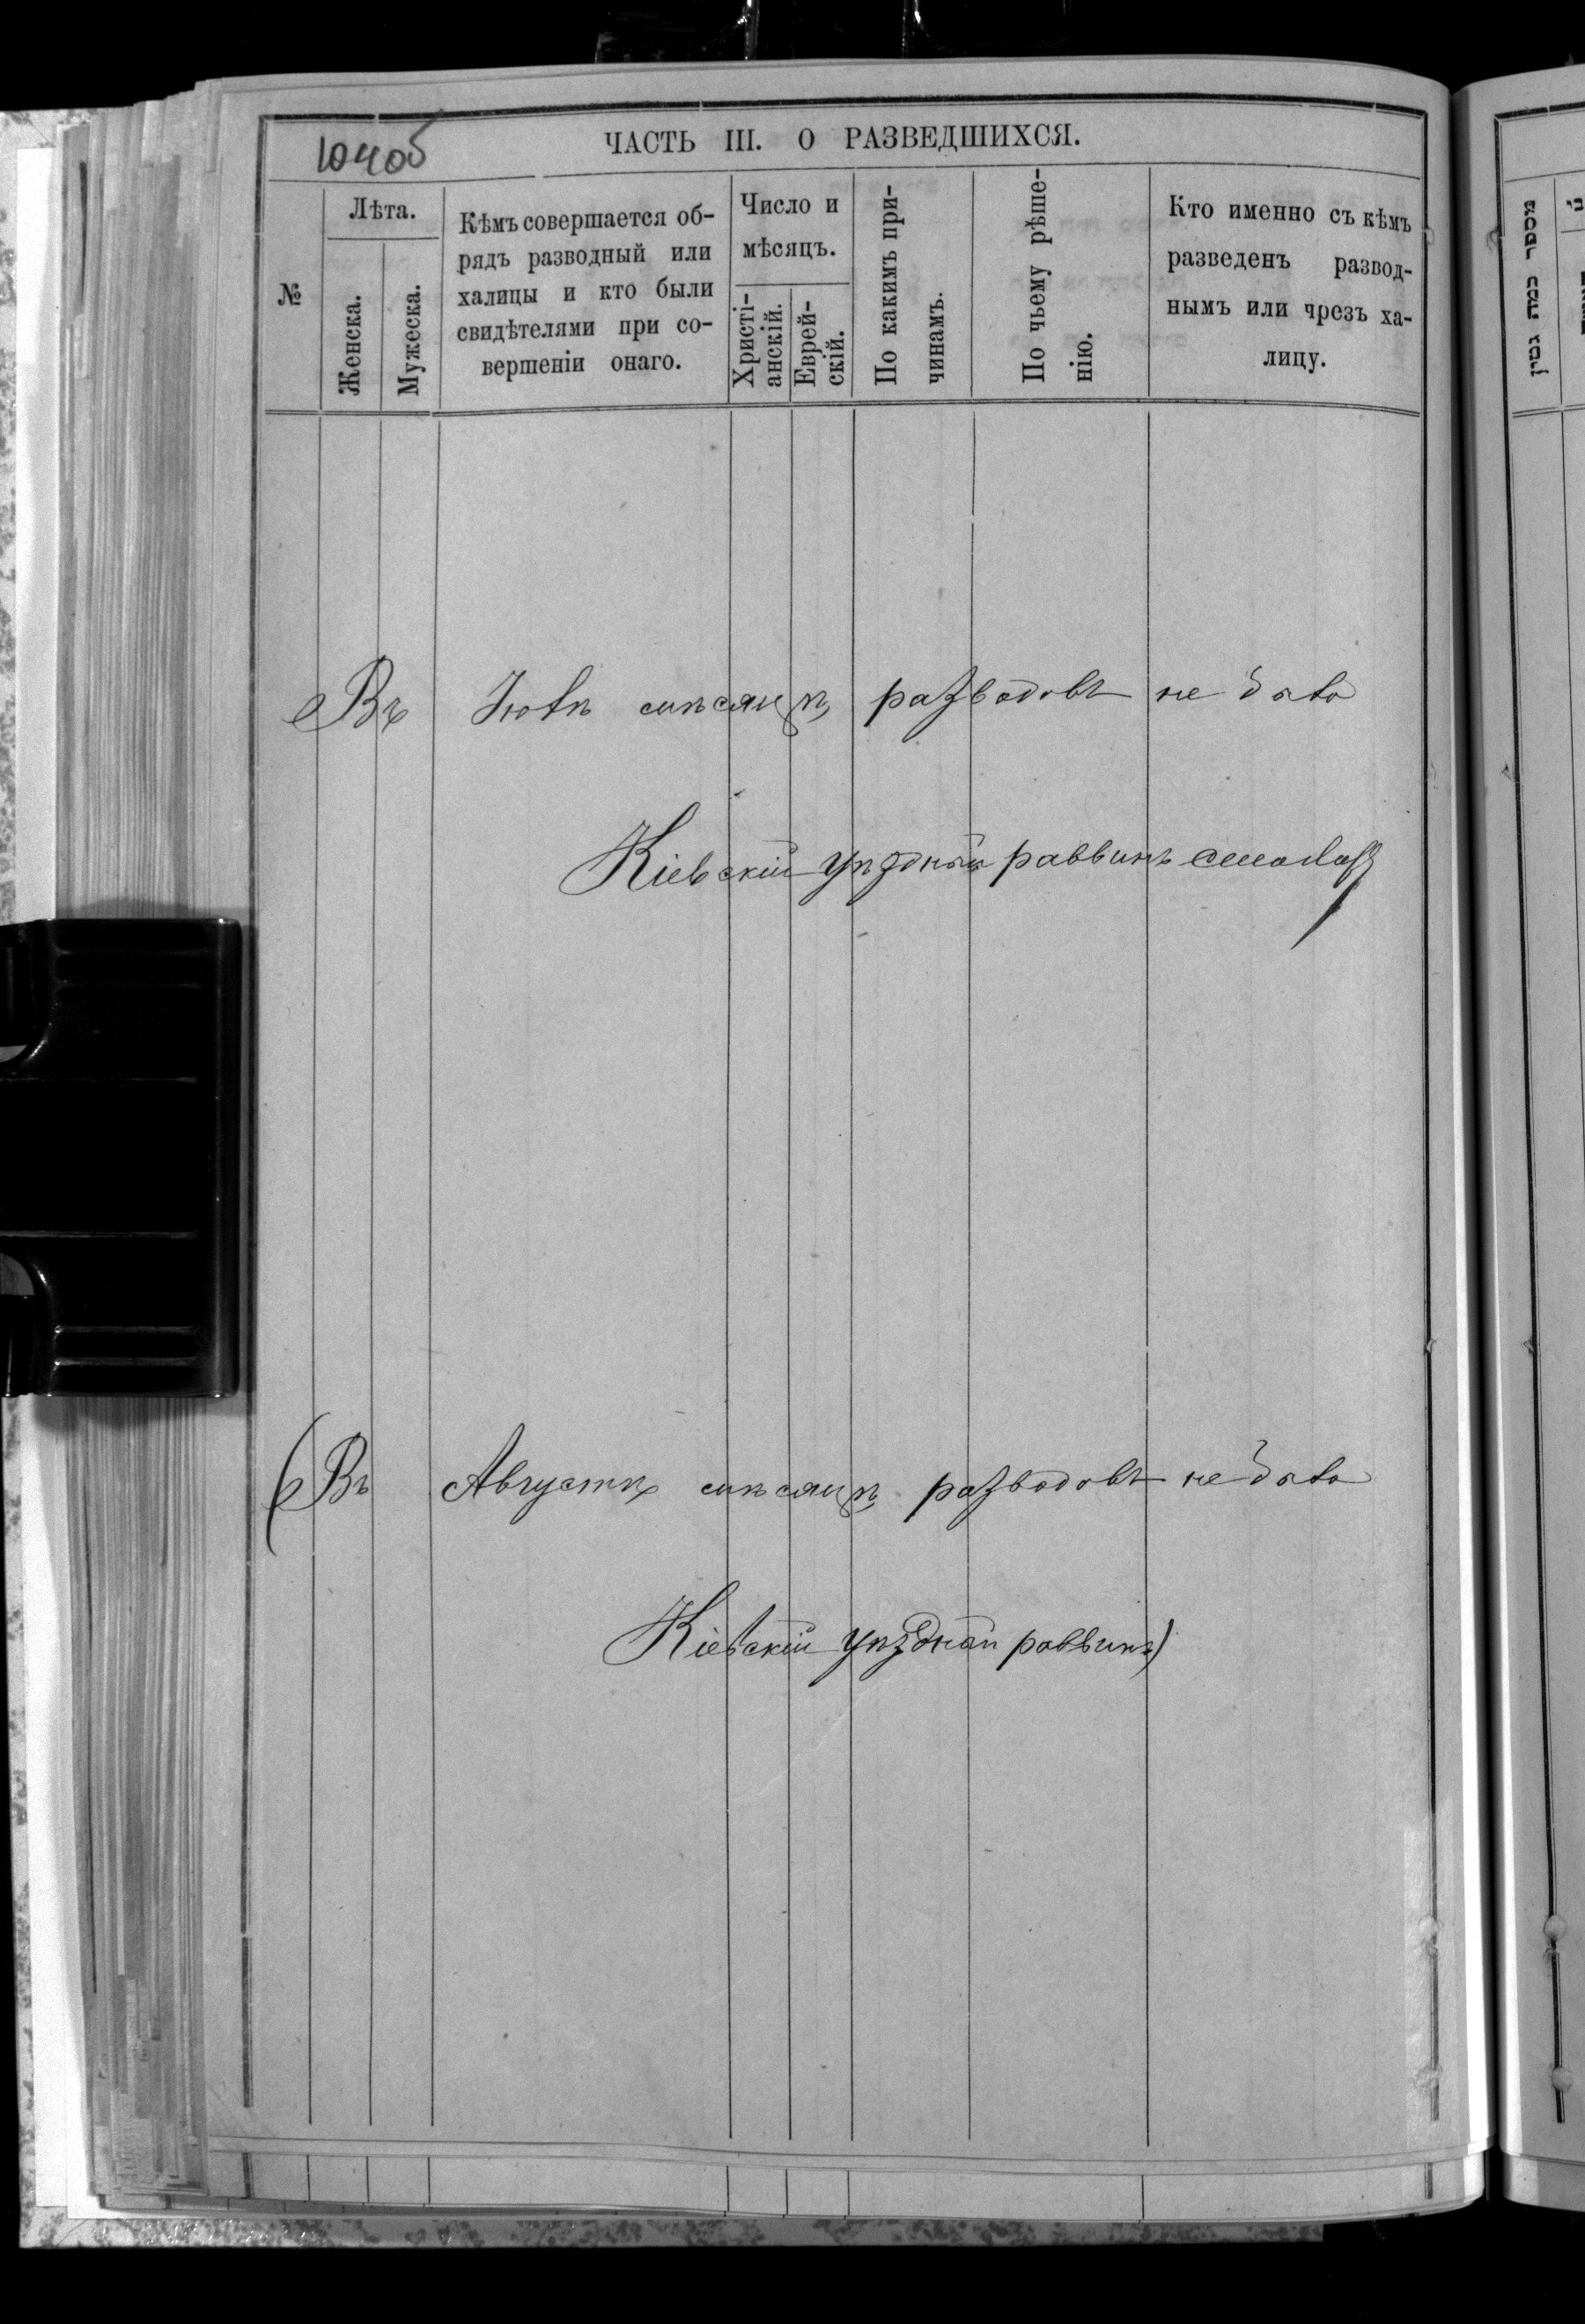 104об
ЧАСТЬ III. О РАЗВЕДШИХСЯ.
№
Лѣта.
Женска.
Мужеска.
Кѣмъ совершается об-
рядъ разводный или
халицы и кто были
свидѣтелями при со-
вершеніи онаго.
Число и
мѣсяцъ.
Христі-
анскій.
Еврей-
скій.
По какимъ при-
чинамъ.
По чьему рѣше-
нію.
Кто именно съ кѣмъ
разведенъ развод-
нымъ или чрезъ ха-
лицу.
מספר כמה גטין
Въ Іюлѣ мѣсяцѣ разводовъ не было
Кіевскій уѣздный раввинъ
(Въ Августѣ мѣсяцѣ разводовъ не было
Кіевскій уѣздный раввинъ)